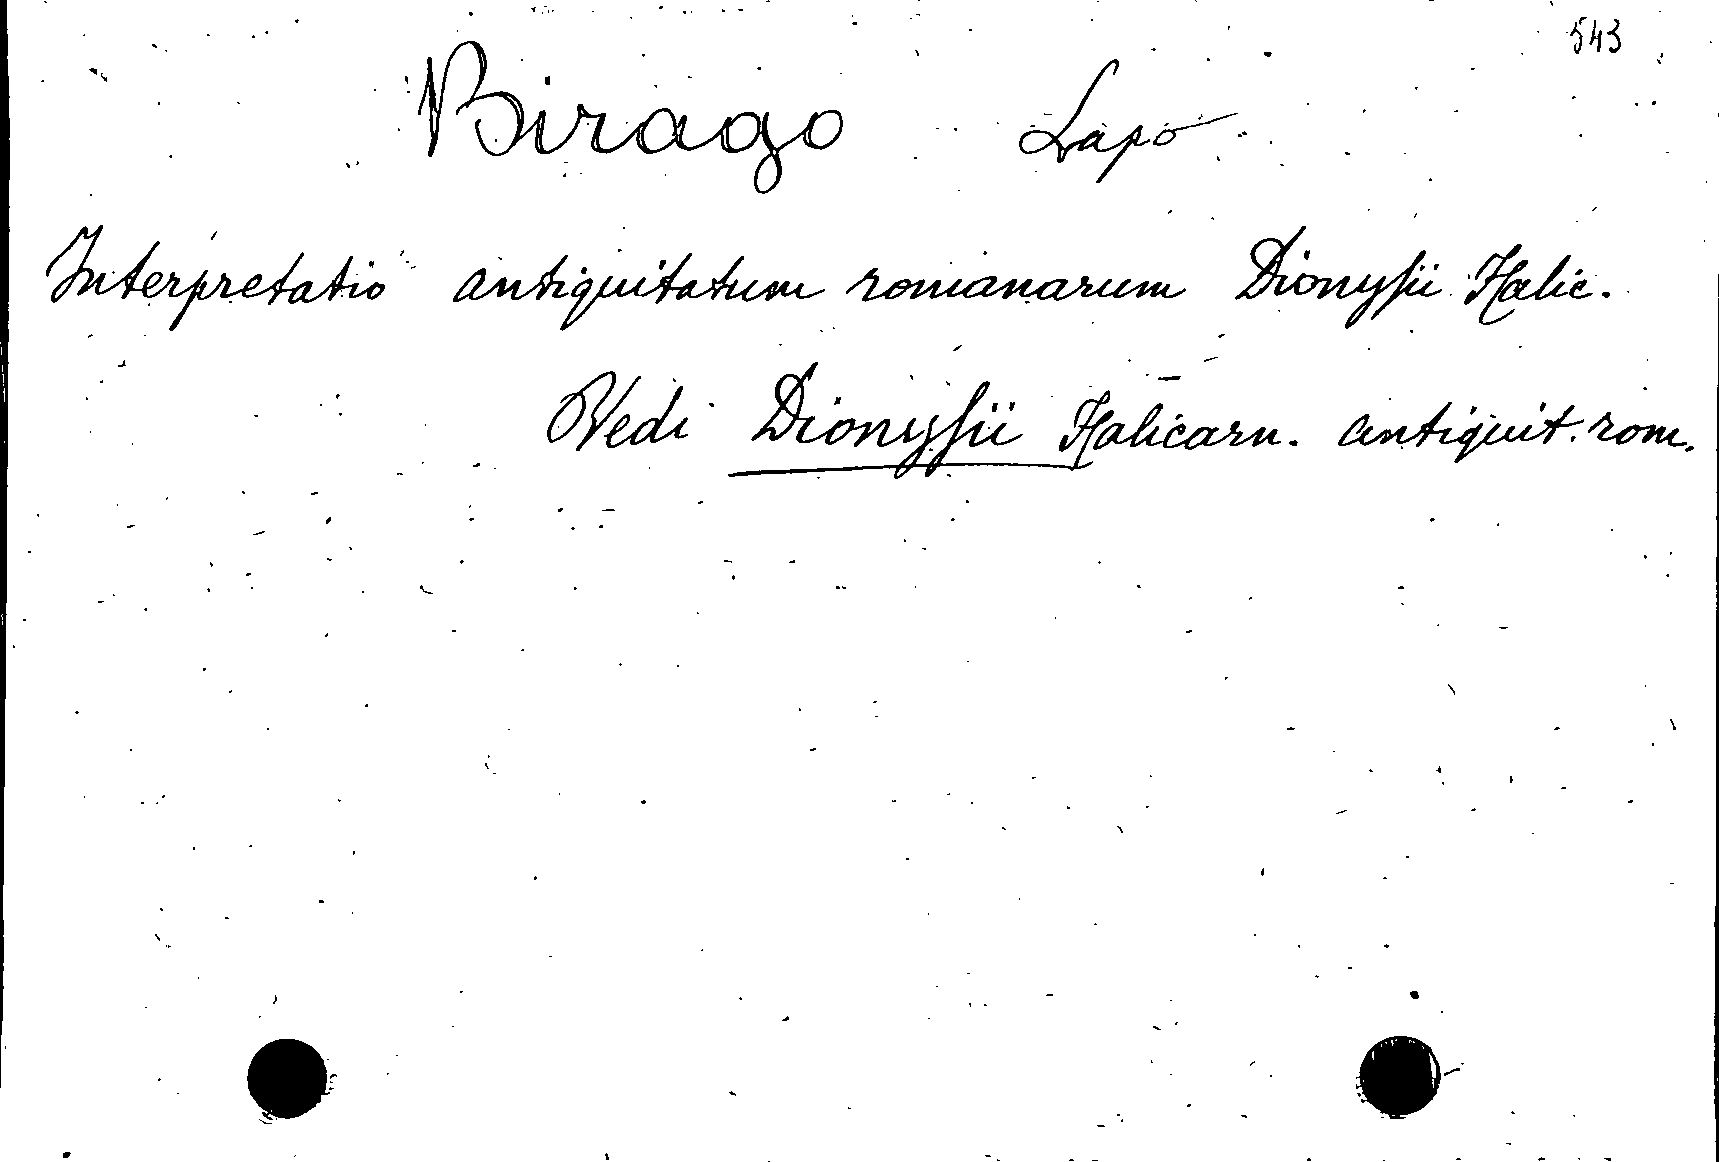 543
Birago Lapo
Interpretatio antiquitatum romanarum Dionysii Halic.
Vedi Dionysii Halicarn. antiquit. rom.